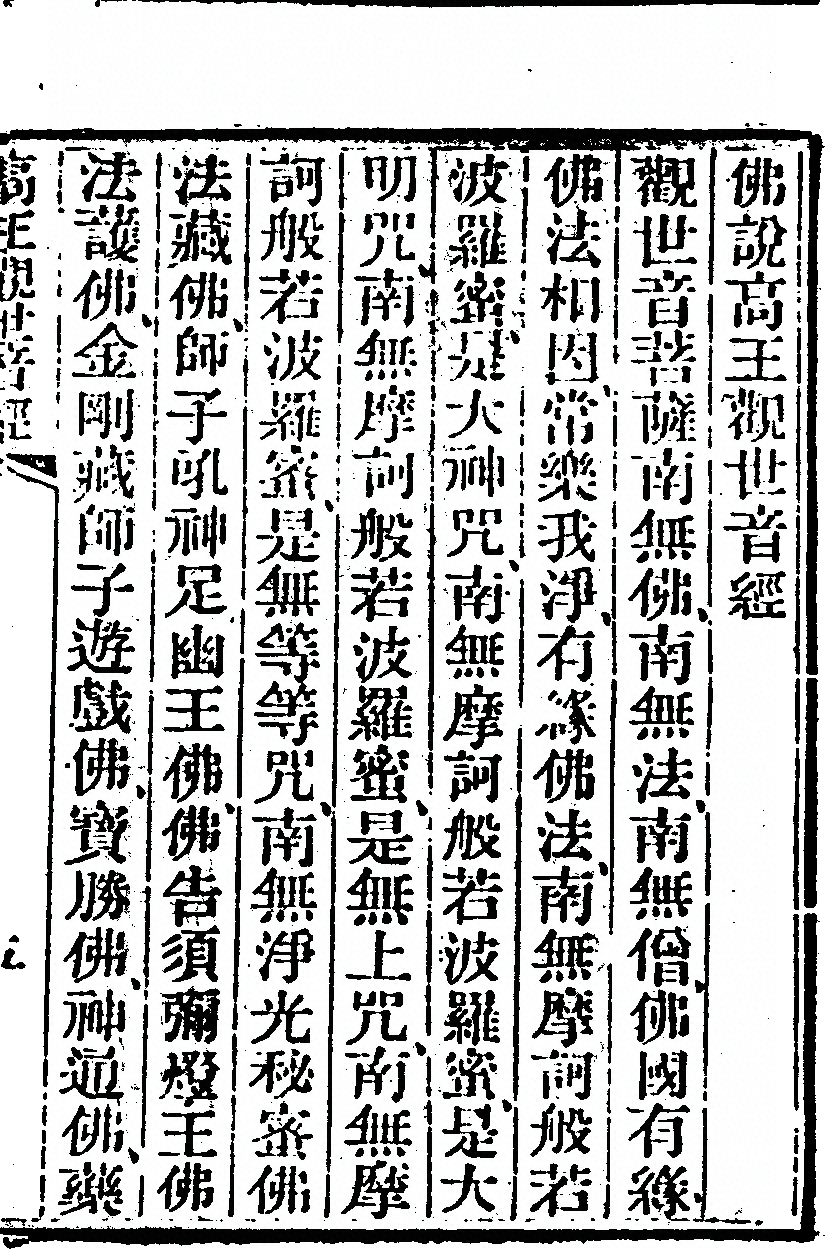 佛說高王觀世音經
觀世音菩薩南無佛南無法南無僧佛國有緣
佛法相因常樂我淨有緣佛法南無摩訶般若
波羅蜜是大神咒南無摩訶般若波羅蜜是大
明咒南無摩訶般若波羅蜜是無上咒南無摩
訶般若波羅蜜是無等等咒南無淨光秘密佛
法藏佛師子吼神足幽王佛佛告須彌燈王佛
法護佛金剛藏師子遊戲佛寶勝佛神通佛藥
高王觀世音經